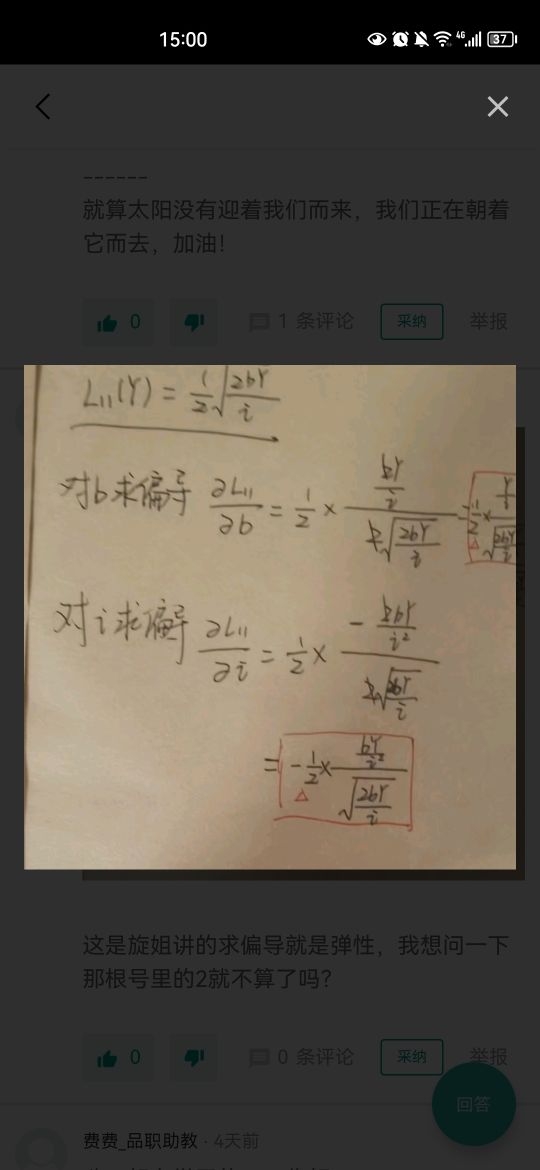 15:00
4G
37
------
就算太阳没有迎着我们而来，我们正在朝着
它而去，加油！
0
1 条评论
采纳
举报
L₁₁(Y) = 1/2 √(2bY/i)
对b求偏导 ∂L₁₁/∂b = 1/2 × (2Y/i)/(2√(2bY/i)) = 1/2 × (Y/i)/√(2bY/i)
对i求偏导 ∂L₁₁/∂i = 1/2 × (-2bY/i²)/(2√(2bY/i))
= -1/2 × (bY/i²)/√(2bY/i)
这是旋姐讲的求偏导就是弹性，我想问一下
那根号里的2就不算了吗？
0
0 条评论
采纳
举报
回答
费费_品职助教 · 4天前